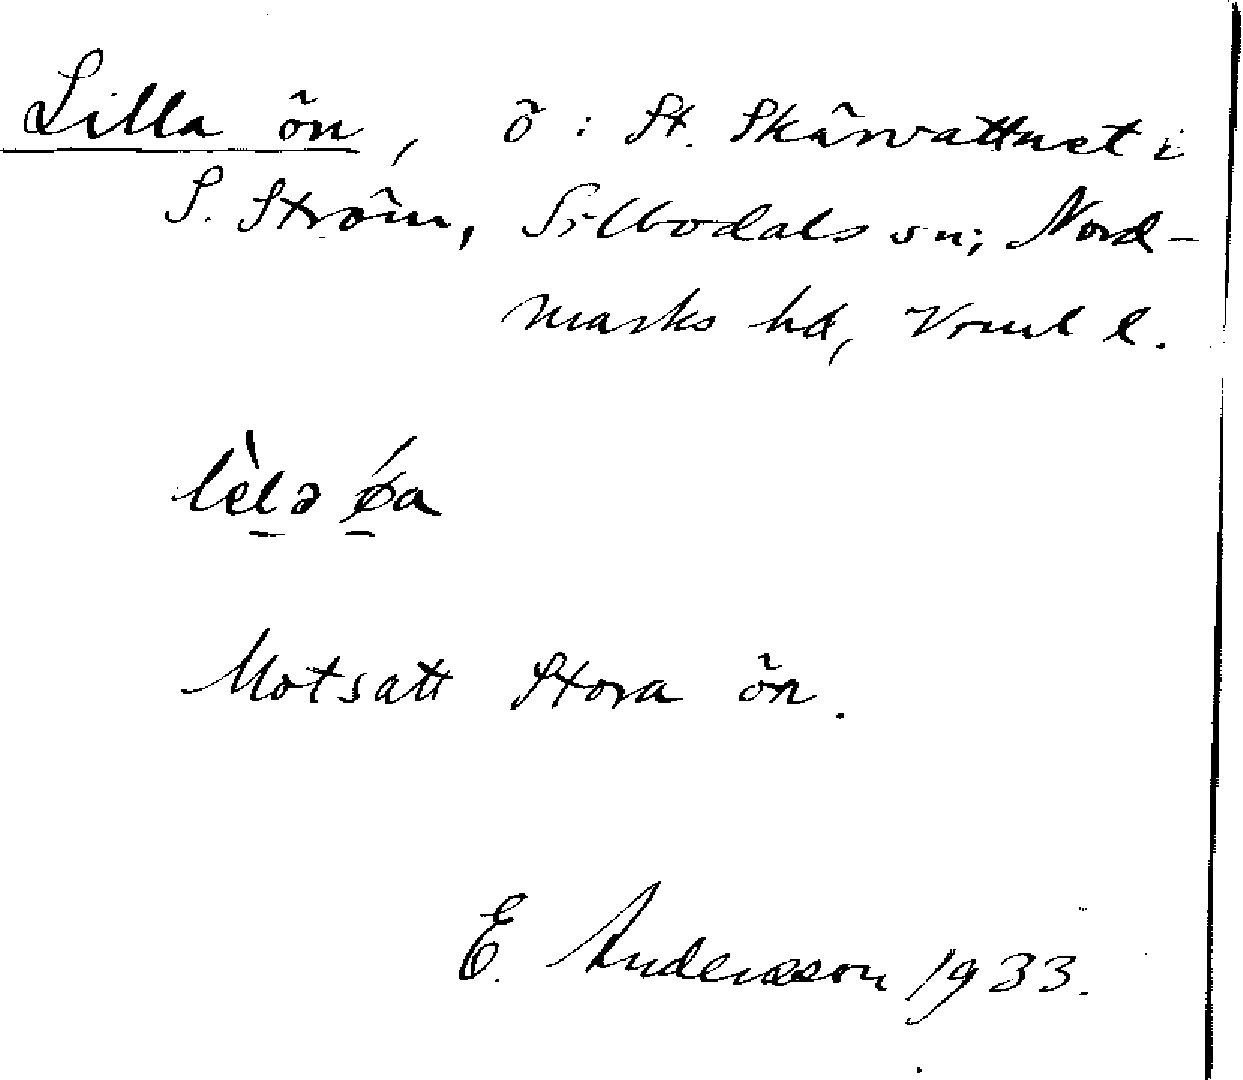 Lilla ön, ö i St. Skärvattnet i
S. Ström, Silbodals sn, Nord-
marks hd, Vrml l.
lèlə ǿa
Motsatt Stora ön.
E. Andersson 1933.